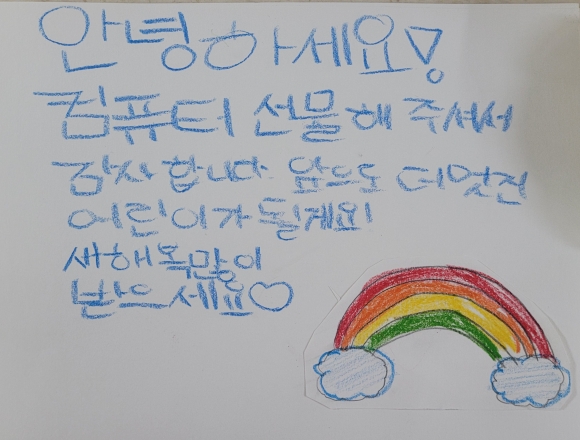 안녕하세요!
컴퓨터 선물해 주셔서
감사합니다 앞으로 더멋진
어린이가 될게요!
새해복많이
받으세요♡